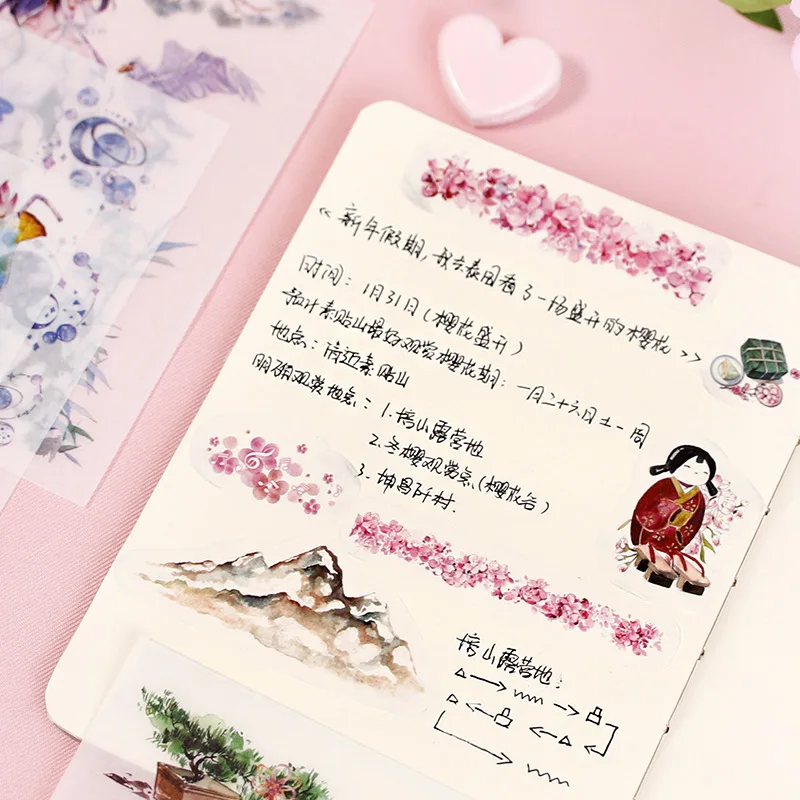 《新年假期,我去泰国看了一场盛开的樱花》
时间:1月31日(樱花盛开)
预计素贴山最好观赏樱花期:一月二十六日±一周
地点:清迈素贴山
明确观赏地点:1.培山露营地
2.冬樱观赏点(樱花谷)
3.坤昌阡村.
培山露营地: